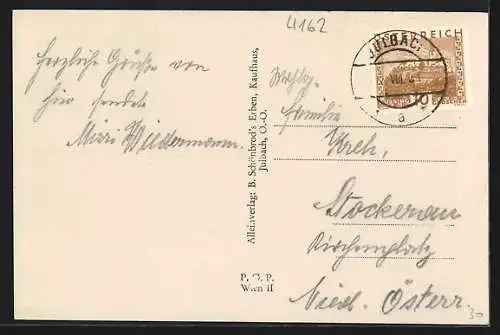 4162
Herzliche Grüße von
hier sendet
Mizzi Wiedermann.
Alleinverlag: B. Schönbrod's Erben, Kaufhaus,
Julbach, O.-Ö.
P. G. P.
Wien II
ÖSTERREICH
JULBACH
VIII
a
10 GROSCHEN
Wohlg.
Familie
Kreh,
Stockerau
Kirchenplatz
Nied. Österr.
30